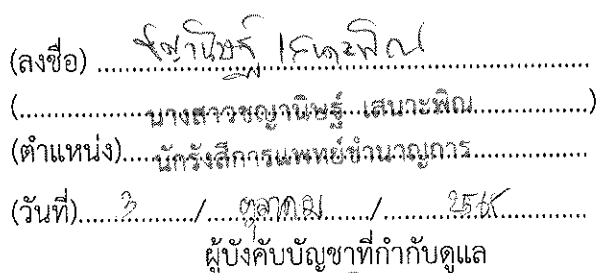 (ลงชื่อ) ชญานิษฐ์ เสนาะพิณ
(นางสาวชญานิษฐ์ เสนาะพิณ)
(ตำแหน่ง) นักรังสีการแพทย์ชำนาญการ
(วันที่) 3 / ตุลาคม /
ผู้บังคับบัญชาที่กำกับดูแล